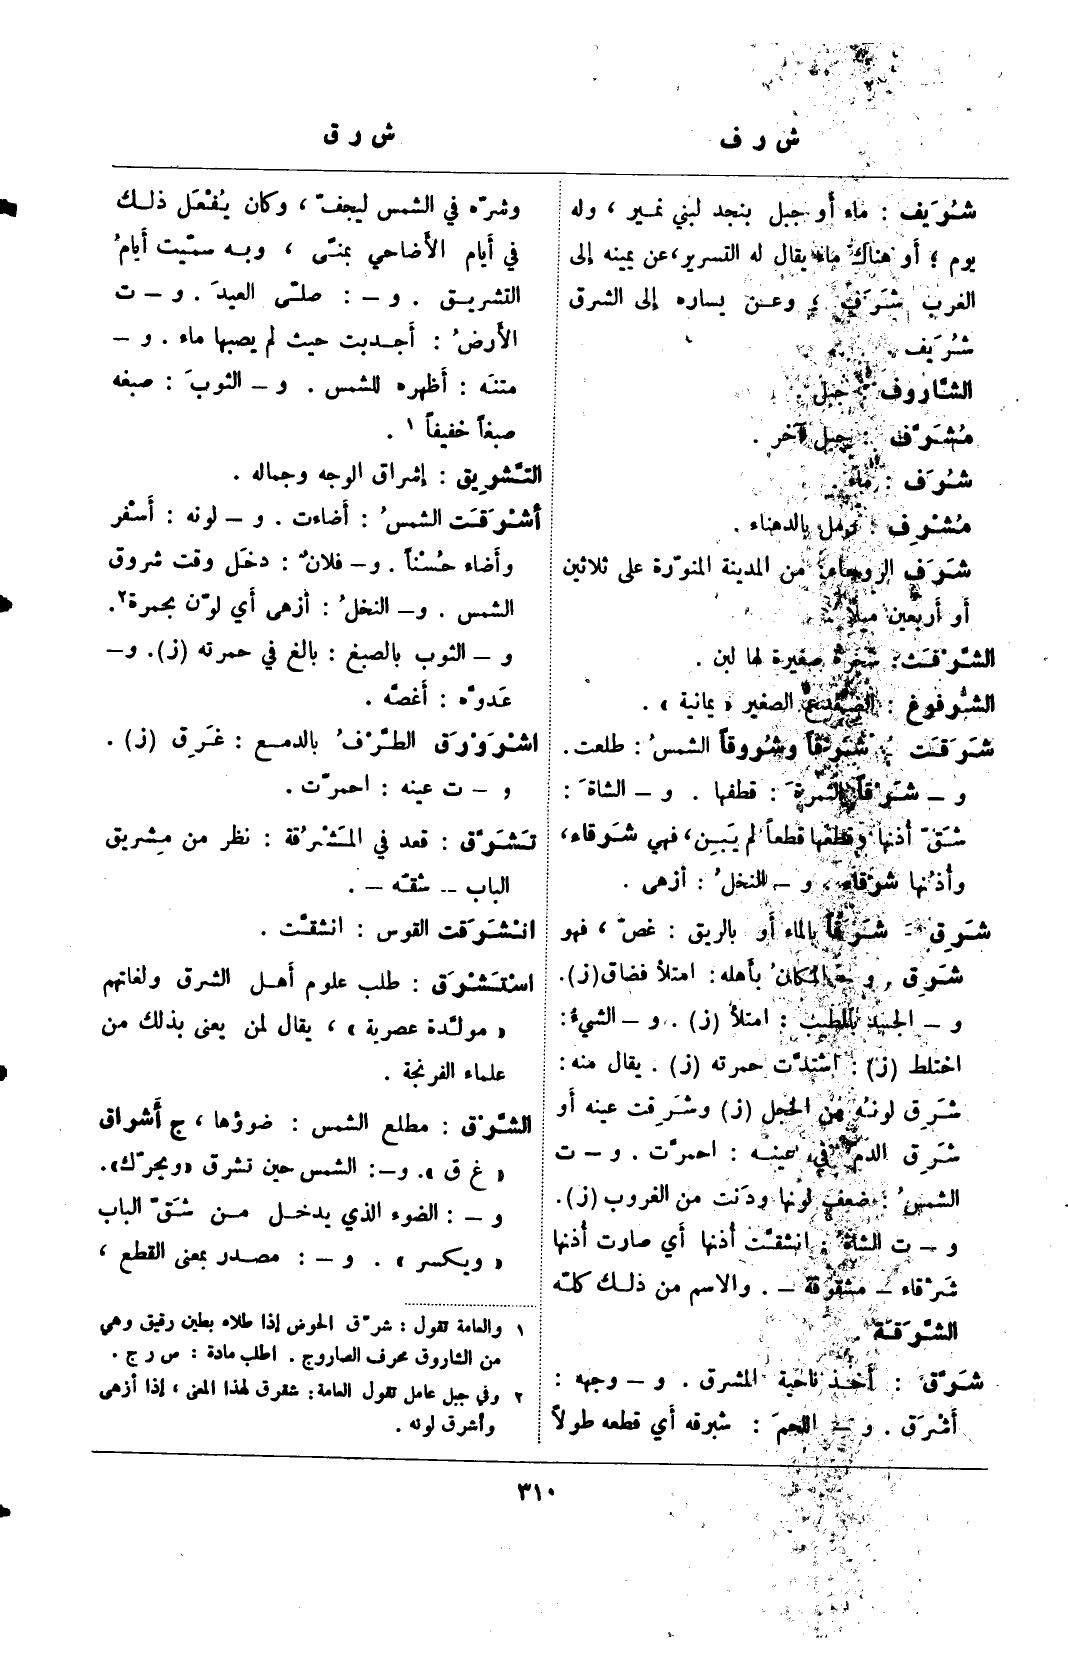 ش ر ف
ش ر ق
شُرَيف : ماء أو جبل بنجد لبني نمير ، وله
يوم ؛ أو هناك ماء يقال له التسرير، عن يمينه إلى
الغرب شَرَفٌ ؛ وعن يساره إلى الشرق
شُرَيف .
الشَّاروف : جبل .
مُشَرَّف : جبل آخر .
شُرَف : ماء .
مُشْرِف : رمل بالدهناء .
شَرَف الروحاء: من المدينة المنوّرة على ثلاثين
أو أربعين ميلاً .
الشَّرْقَت: شجرة صغيرة لها لبن .
الشُّرفوغ : الضفدع الصغير « يمانية » .
شَرَقَت ُ شَرْقاً وشُروقاً الشمسُ : طلعت .
و – شَرْقاً الثمرةَ : قطفها . و – الشاةَ :
شقّ أذنها وقطعها قطعاً لم يَبِن، فهي شَرقاء،
وأذنها شرقاء . و – النخلُ : أزهى .
شَرِق َ شَرَقاً بالماء أو بالريق : غصّ ، فهو
شَرِق . و – المكانُ بأهله: امتلأ فضاق (ز).
و – الجسد بالطيب : امتلأ (ز) . و – الشيءُ :
اختلط (ز) : اشتدَّت حمرته (ز) . يقال منه :
شَرِق لونُه من الخجل (ز) وشَرِقت عينه أو
شَرِق الدمُ في عينه : احمرّت . و – ت
الشمسُ : ضعف لونها ودَنت من الغروب (ز).
و – ت الشاةُ : انشقّت أذنها أي صارت أذنها
شَرْقاء – مشقوقة – . والاسم من ذلك كلّه
الشَّرَقَة .
شَرَّق : أخذ ناحية المشرق . و – وجهه :
أشْرَق . و – اللحمَ : شبرقه أي قطعه طولاً
وشرّه في الشمس ليجفّ ، وكان يُفْعَل ذلك
في أيام الأضاحي بمنًى ، وبه سمّيت أيامُ
التشريق . و – : صلّى العيدَ . و – ت
الأرضُ : أجدبت حيث لم يصبها ماء . و –
متنَه : أظهره للشمس . و – الثوبَ : صبغه
صبغاً خفيفاً ١ .
التَّشْرِيق : إشراق الوجه وجماله .
أشْرَقَت الشمسُ : أضاءت . و – لونه : أسْفر
وأضاء حُسْناً . و – فلانٌ : دخَل وقت شروق
الشمس . و – النخلُ : أزهى أي لوّن بحمرة٢.
و – الثوب بالصبغ : بالغ في حمرته (ز). و –
عَدوّه : أغصَّه .
اشْرَوْرَق الطَّرْفُ بالدمع : غَرِق (ز) .
و – ت عينه : احمرّت .
تَشَرَّق : قعد في المَشْرُقة : نظر من مِشريق
الباب – شقّه – .
انْشَرَقت القوس : انشقّت .
اسْتَشْرَق : طلب علوم أهل الشرق ولغاتهم
« مولّدة عصرية » ، يقال لمن يعنى بذلك من
علماء الفرنجة .
الشَّرْق : مطلع الشمس : ضوؤها ، ج أشراق
« غ ق ». و –: الشمس حين تشرق «ويحرّك».
و – : الضوء الذي يدخل من شقّ الباب
« ويكسر » . و – : مصدر بمعنى القطع ،
١ والعامة تقول : شرّق الحوض إذا طلاه بطين رقيق وهي
من الشاروق محرف الصاروج . اطلب مادة : ص ر ج .
٢ وفي جبل عامل تقول العامة: شقرق لهذا المعنى ، إذا أزهى
وأشرق لونه .
٣١٠